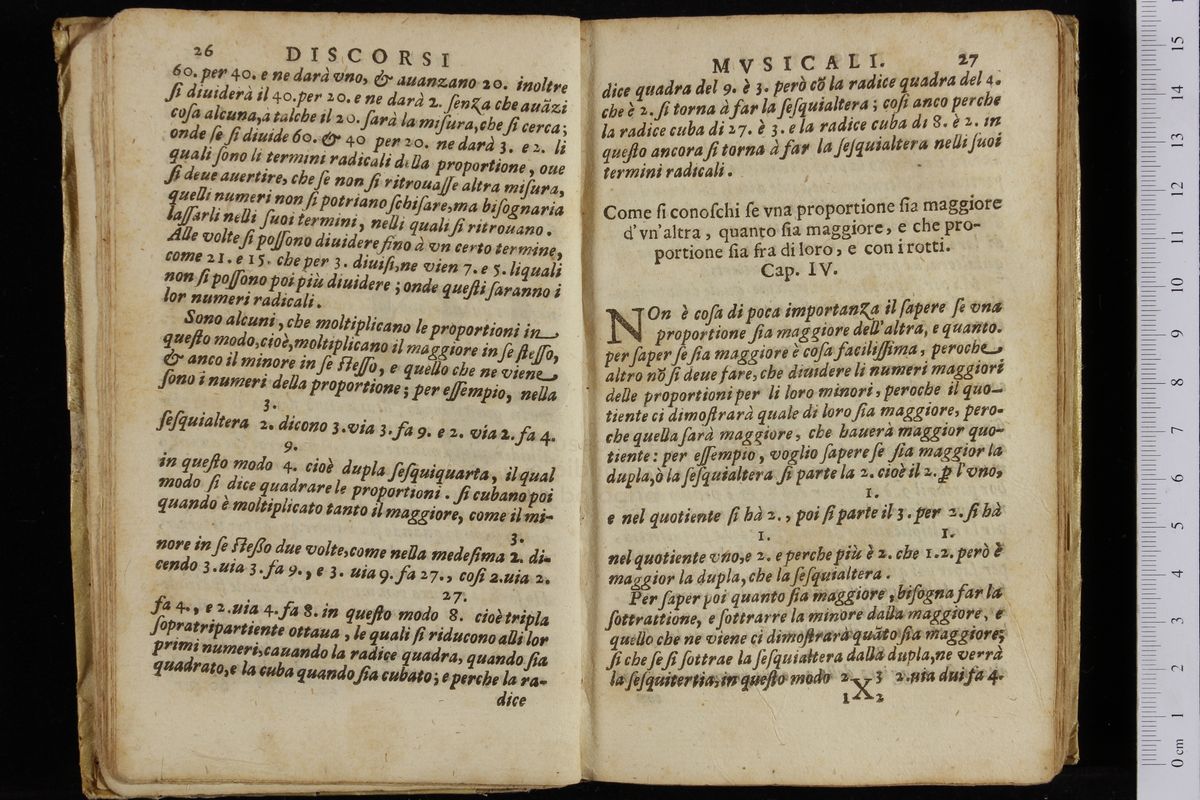 26 DISCORSI
60. per 40. e ne darà vno, & auanzano 20. inoltre
ſi diuiderà il 40. per 20. e ne darà 2. ſenza che auãzi
coſa alcuna, à talche il 20. ſarà la miſura, che ſi cerca;
onde ſe ſi diuide 60. & 40 per 20. ne darà 3. e 2. li
quali ſono li termini radicali della proportione, oue
ſi deue auertire, che ſe non ſi ritrouaſſe altra miſura,
quelli numeri non ſi potriano ſchiſare, ma biſognaria
laſſarli nelli ſuoi termini, nelli quali ſi ritrouano.
Alle volte ſi poſſono diuidere fino à vn certo termine,
come 21. e 15. che per 3. diuiſi, ne vien 7. e 5. liquali
non ſi poſſono poi più diuidere; onde queſti ſaranno i
lor numeri radicali.
Sono alcuni, che moltiplicano le proportioni in
queſto modo, cioè, moltiplicano il maggiore in ſe ſteſſo,
& anco il minore in ſe ſteſſo, e quello che ne viene
ſono i numeri della proportione; per eſſempio, nella
3.
ſeſquialtera 2. dicono 3. via 3. fa 9. e 2. via 2. fa 4.
9.
in queſto modo 4. cioè dupla ſeſquiquarta, il qual
modo ſi dice quadrare le proportioni. ſi cubano poi
quando è moltiplicato tanto il maggiore, come il mi-
3.
nore in ſe ſteßo due volte, come nella medeſima 2. di-
cendo 3. uia 3. fa 9., e 3. uia 9. fa 27., coſi 2. uia 2.
27.
fa 4., e 2. uia 4. fa 8. in queſto modo 8. cioè tripla
ſopratripartiente ottaua, le quali ſi riducono alli lor
primi numeri, cauando la radice quadra, quando ſia
quadrato, e la cuba quando ſia cubato; e perche la ra-
dice
MVSICALI. 27
dice quadra del 9. è 3. però cõ la radice quadra del 4.
che è 2. ſi torna à far la ſeſquialtera; coſi anco perche
la radice cuba di 27. è 3. e la radice cuba di 8. è 2. in
queſto ancora ſi torna à far la ſeſquialtera nelli ſuoi
termini radicali.
Come ſi conoſchi ſe vna proportione ſia maggiore
d'vn'altra, quanto ſia maggiore, e che pro-
portione ſia fra di loro, e con i rotti.
Cap. IV.
NOn è coſa di poca importanza il ſapere ſe vna
proportione ſia maggiore dell'altra, e quanto.
per ſaper ſe ſia maggiore è coſa faciliſſima, peroche
altro nõ ſi deue fare, che diuidere li numeri maggiori
delle proportioni per li loro minori, peroche il quo-
tiente ci dimoſtrarà quale di loro ſia maggiore, pero-
che quella ſarà maggiore, che hauerà maggior quo-
tiente: per eſſempio, voglio ſapere ſe ſia maggior la
dupla, ò la ſeſquialtera ſi parte la 2. cioè il 2. ꝑ l'vno,
1.
e nel quotiente ſi hà 2., poi ſi parte il 3. per 2. ſi hà
1. 1.
nel quotiente vno, e 2. e perche più è 2. che 1.2. però è
maggior la dupla, che la ſeſquialtera.
Per ſaper poi quanto ſia maggiore, biſogna far la
ſottrattione, e ſottrarre la minore dalla maggiore, e
quello che ne viene ci dimoſtrarà quãto ſia maggiore;
ſi che ſe ſi ſottrae la ſeſquialtera dalla dupla, ne verrà
la ſeſquitertia, in queſto modo 2 X 3 2. uia dui fa 4.
1 2
0 cm 1 2 3 4 5 6 7 8 9 10 11 12 13 14 15